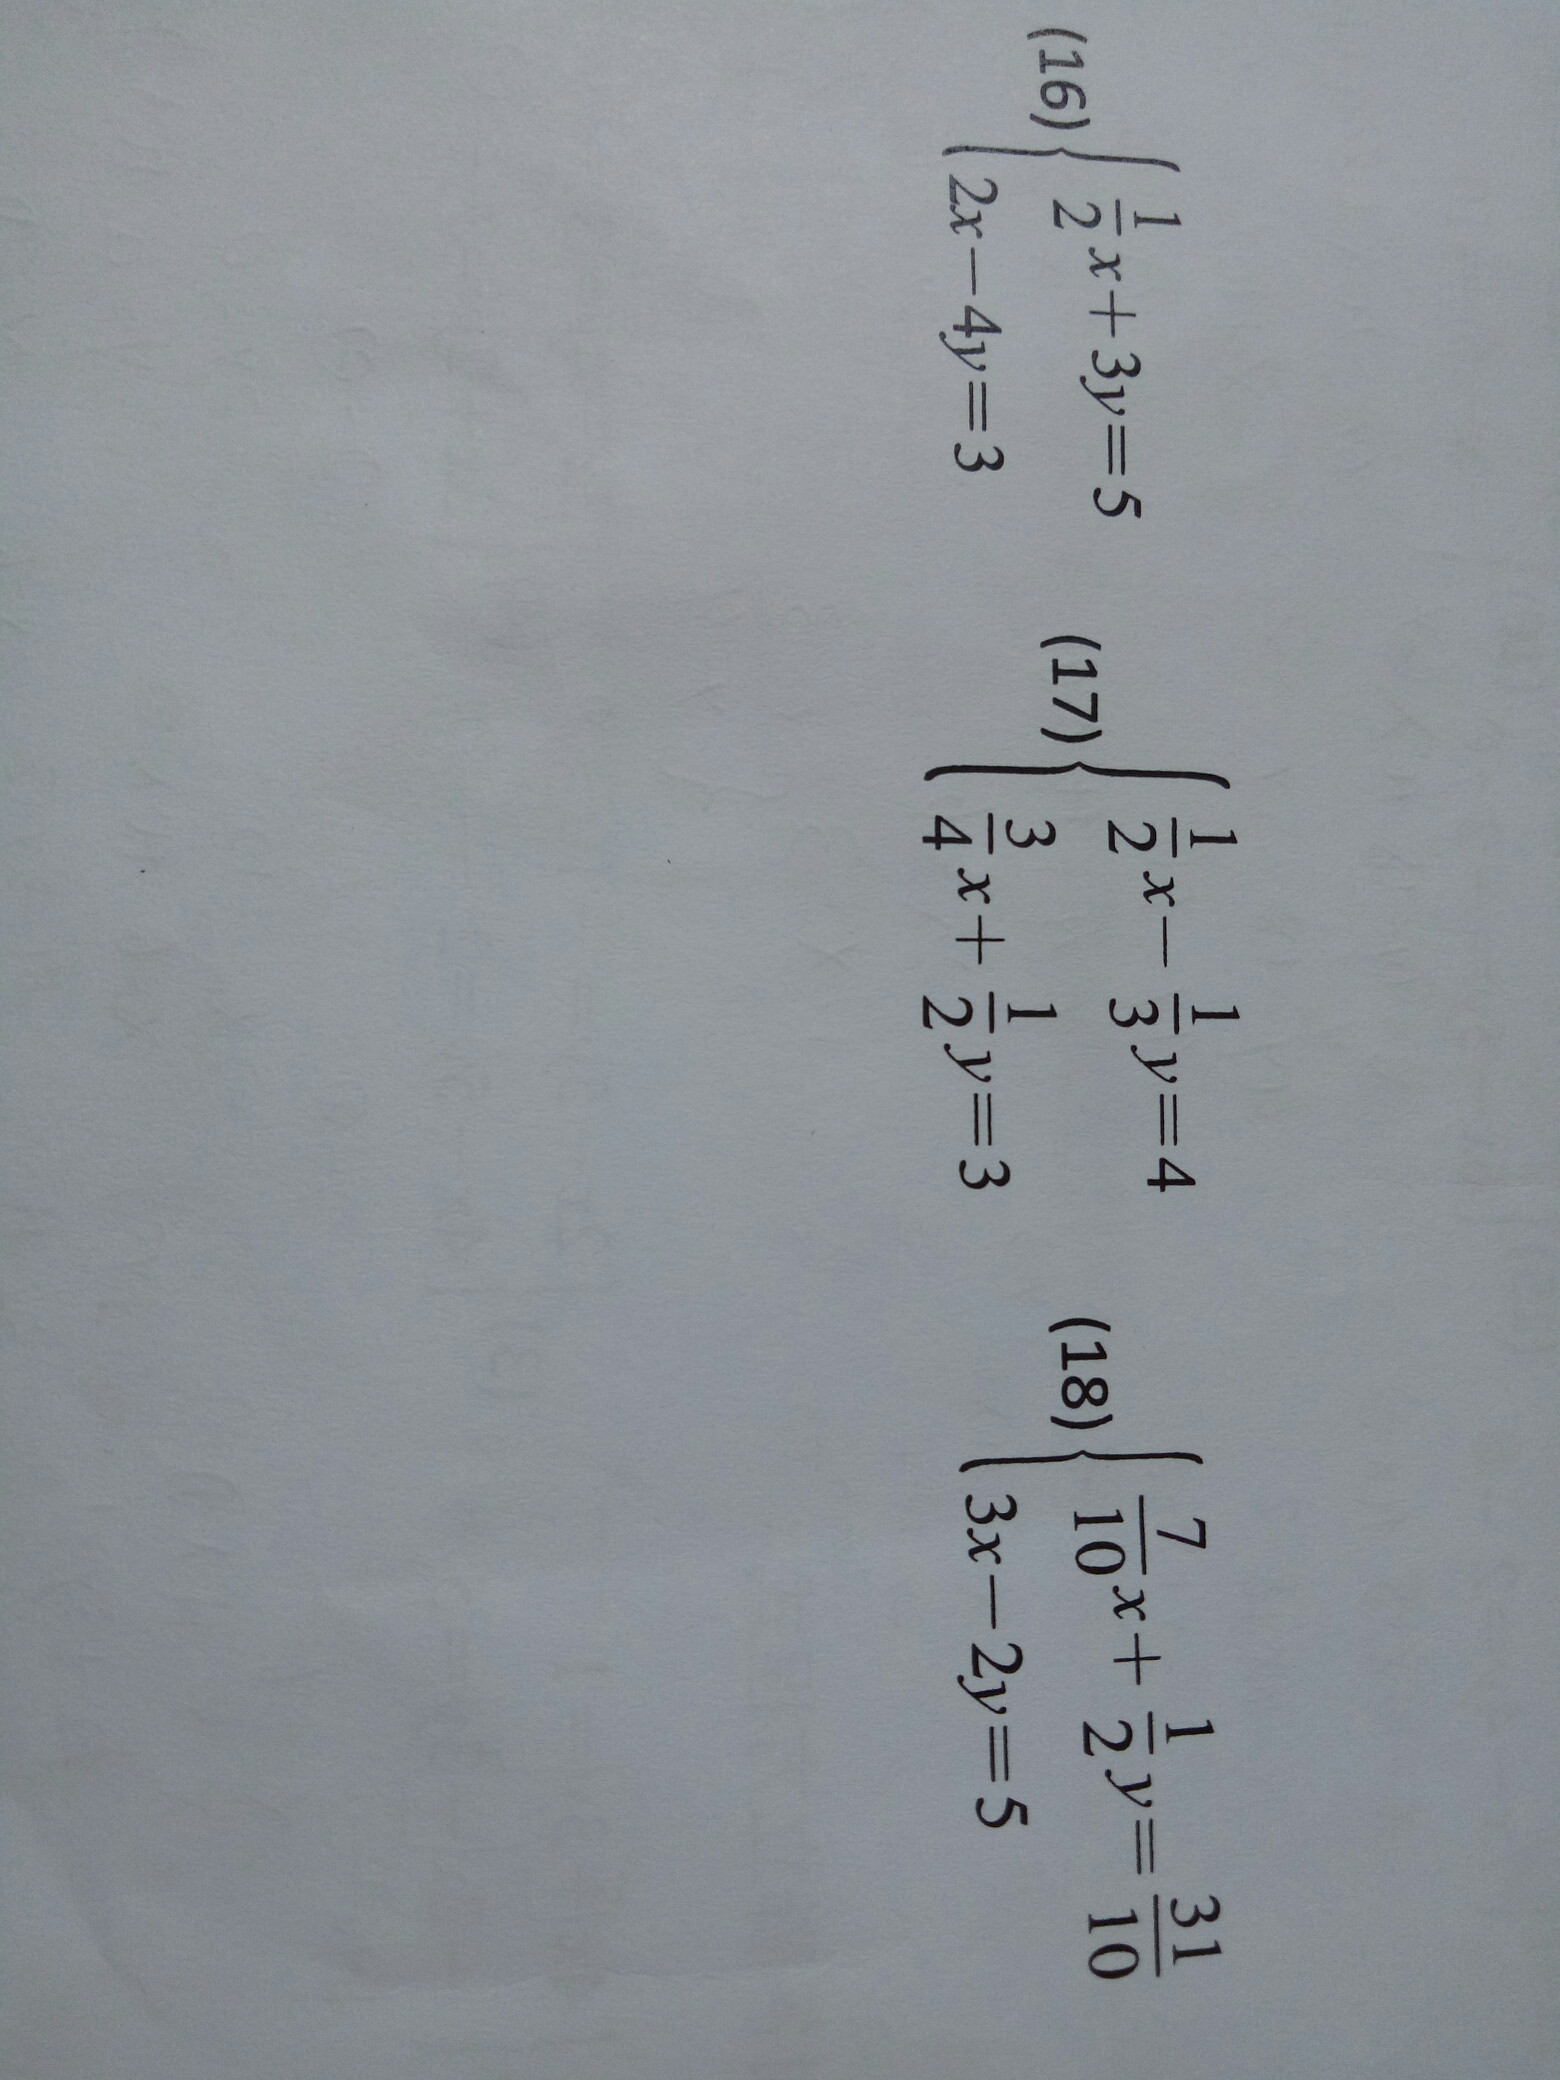 (16) { 1/2 x + 3y = 5
2x − 4y = 3
(17) { 1/2 x − 1/3 y = 4
3/4 x + 1/2 y = 3
(18) { 7/10 x + 1/2 y = 31/10
3x − 2y = 5